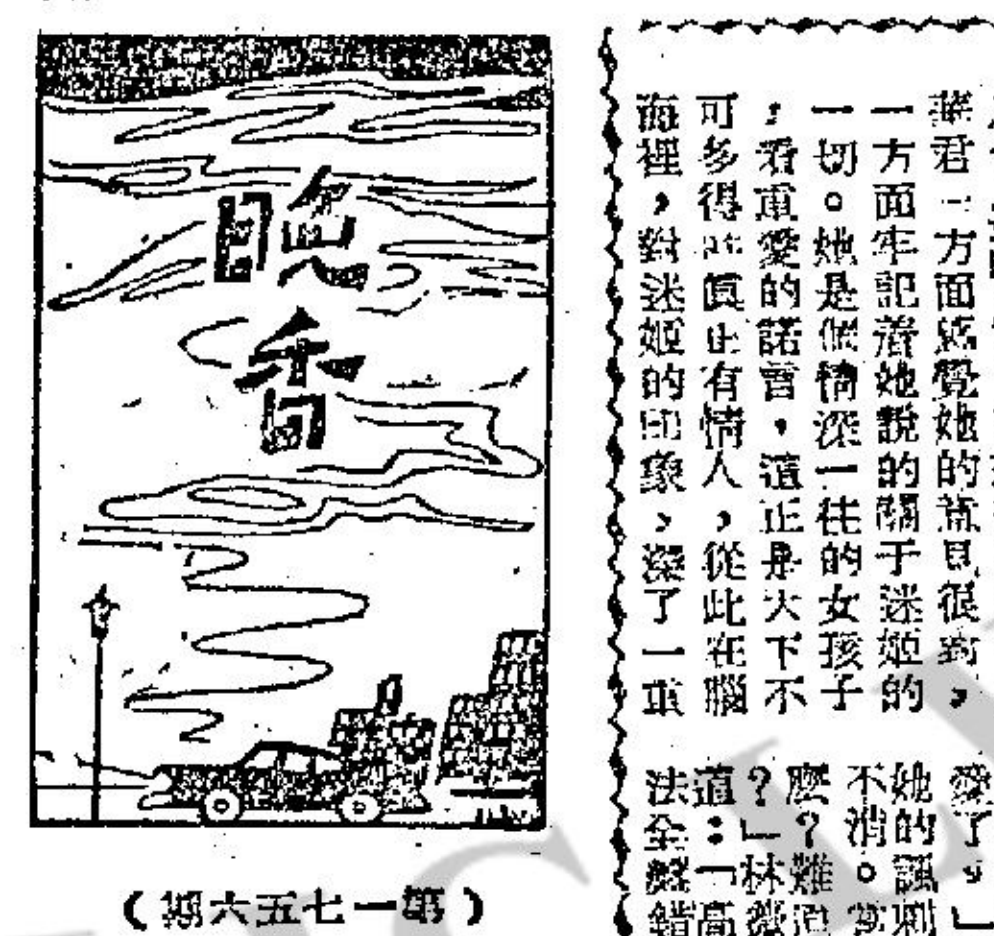 晚香
（第一七五六期）
華君一方面感覺她的意見很對，
一方面牢記着她說的關于迷姬的
一切。她是個情深一往的女孩子
，看重愛的諾言，這正是天下不
可多得的真正有情人，從此在腦
海裡，對迷姬的印象，深了一重
愛了，」
她的諷刺
不消。
麼？難道
？」林
道：「高
法全盤錯